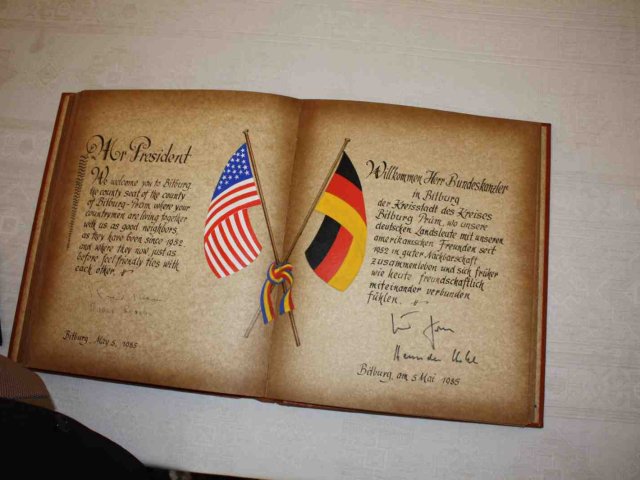 Mr President
We welcome you to Bitburg
the county seat of the county
of Bitburg-Prüm where your
countrymen are living together
with us as good neighbors,
as they have been since 1952
and where they now just as
before feel friendly ties with
each other.
Bitburg, May 5, 1985
Willkommen, Herr Bundeskanzler
in Bitburg
der Kreisstadt des Kreises
Bitburg Prüm, wo unsere
deutschen Landsleute mit unseren
amerikanischen Freunden seit
1952 in guter Nachbarschaft
zusammenleben und sich früher
wie heute freundschaftlich
miteinander verbunden
fühlen.
Bitburg, am 5 Mai 1985